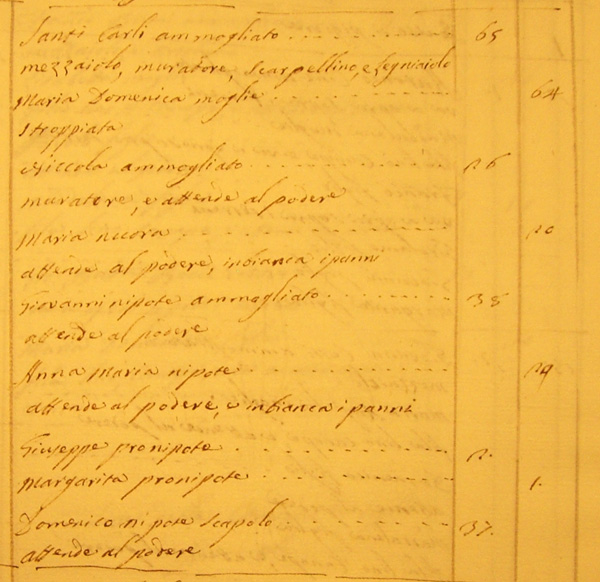 Santi Carli ammogliato . . . . . . . . . . . 65
mezzaiolo, muratore, Scarpellino, e legniaiolo
Maria Domenica moglie . . . . . . . . . . . 64
Stroppiata
Niccola ammogliato . . . . . . . . . . . 26
muratore, e attende al podere
Maria nuora . . . . . . . . . . . 20
attende al podere, inbianca i panni
Giovanni nipote ammogliato . . . . . . . . 38
attende al podere
Anna Maria nipote . . . . . . . . . . . 29
attende al podere, e inbianca i panni
Giuseppe pronipote . . . . . . . . . . . 2.
Margarita pronipote . . . . . . . . . . . 1.
Domenico nipote Scapolo . . . . . . . . . 37.
attende al podere